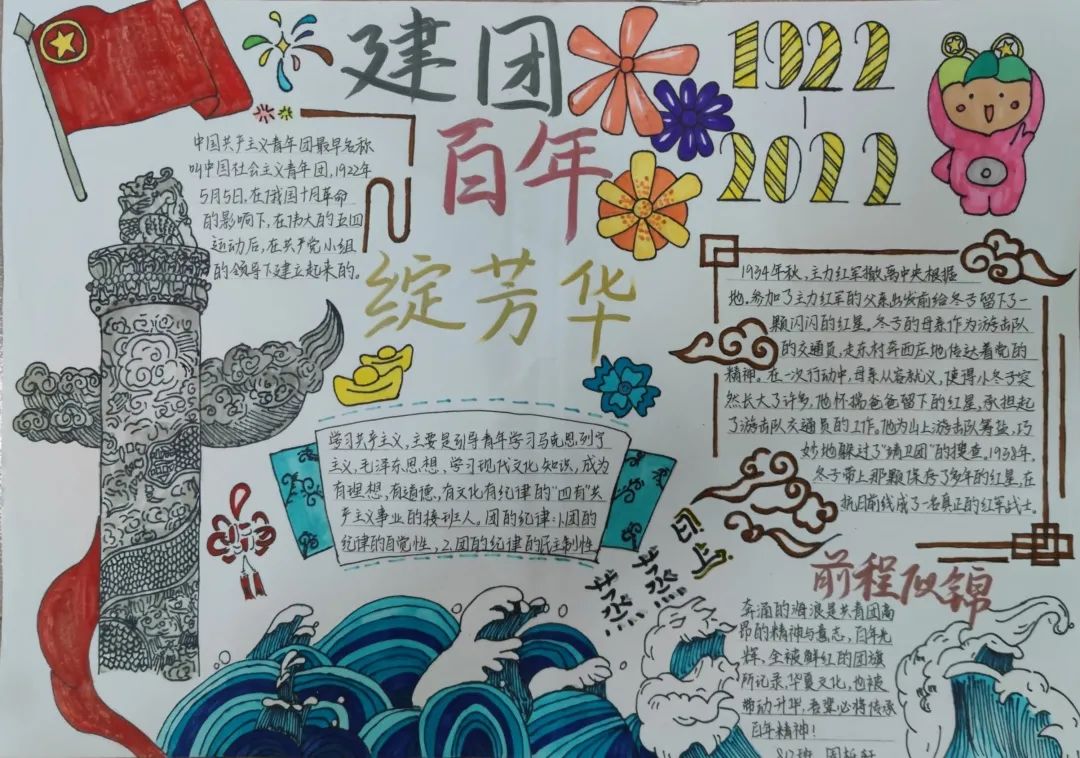 建团
百年
绽芳华
1922
2022
中国共产主义青年团最早名称
叫中国社会主义青年团，1922年
5月5日，在俄国十月革命
的影响下，在伟大的五四
运动后，在共产党小组
的领导下建立起来的。
1934年秋，主力红军撤离中央根据
地。参加了主力红军的父亲出发前给冬子留下了一
颗闪闪的红星。冬子的母亲作为游击队
的交通员，走东村奔西庄地传达着党的
精神。在一次行动中，母亲从容就义，使得小冬子突
然长大了许多，他怀揣爸爸留下的红星，承担起
了游击队交通员的工作。他为山上游击队筹盐，巧
妙地躲过了“靖卫团”的搜查。1938年，
冬子带上那颗保存了多年的红星，在
抗日前线成了一名真正的红军战士。
学习共产主义，主要是引导青年学习马克思，列宁
主义，毛泽东思想，学习现代文化知识，成为
有理想，有道德，有文化有纪律的“四有”共
产主义事业的接班人。团的纪律：1.团的
纪律的自觉性，2.团的纪律的民主制性
蒸蒸日上
前程似锦
奔涌的海浪是共青团高
昂的精神与意志，百年光
辉，全被鲜红的团旗
所记录，华夏文化，也被
带动升华，吾辈必将传承
百年精神！